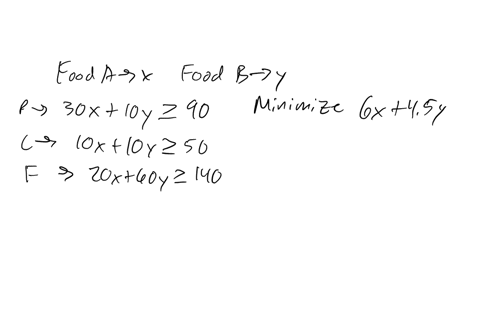 Food A → x Food B → y
P → 30x + 10y ≥ 90 Minimize 6x + 4.5y
C → 10x + 10y ≥ 50
F → 20x + 60y ≥ 140